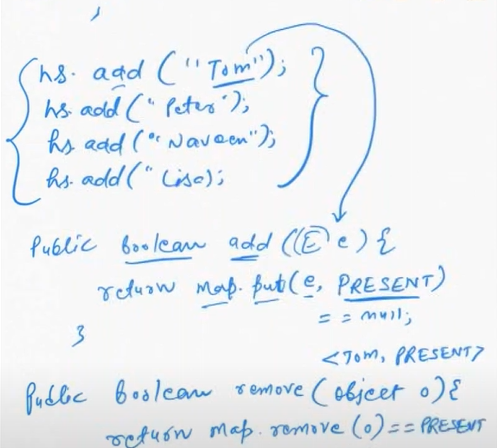 }
hs. add ("Tom");
hs add ("Peter");
hs add ("Naveen");
hs. add ("Lisa);
Public boolean add ((E) e) {
return map. put (e, PRESENT)
= = null;
}
<TOM, PRESENT>
Public boolean remove (object o) {
return map. remove (o) == PRESENT